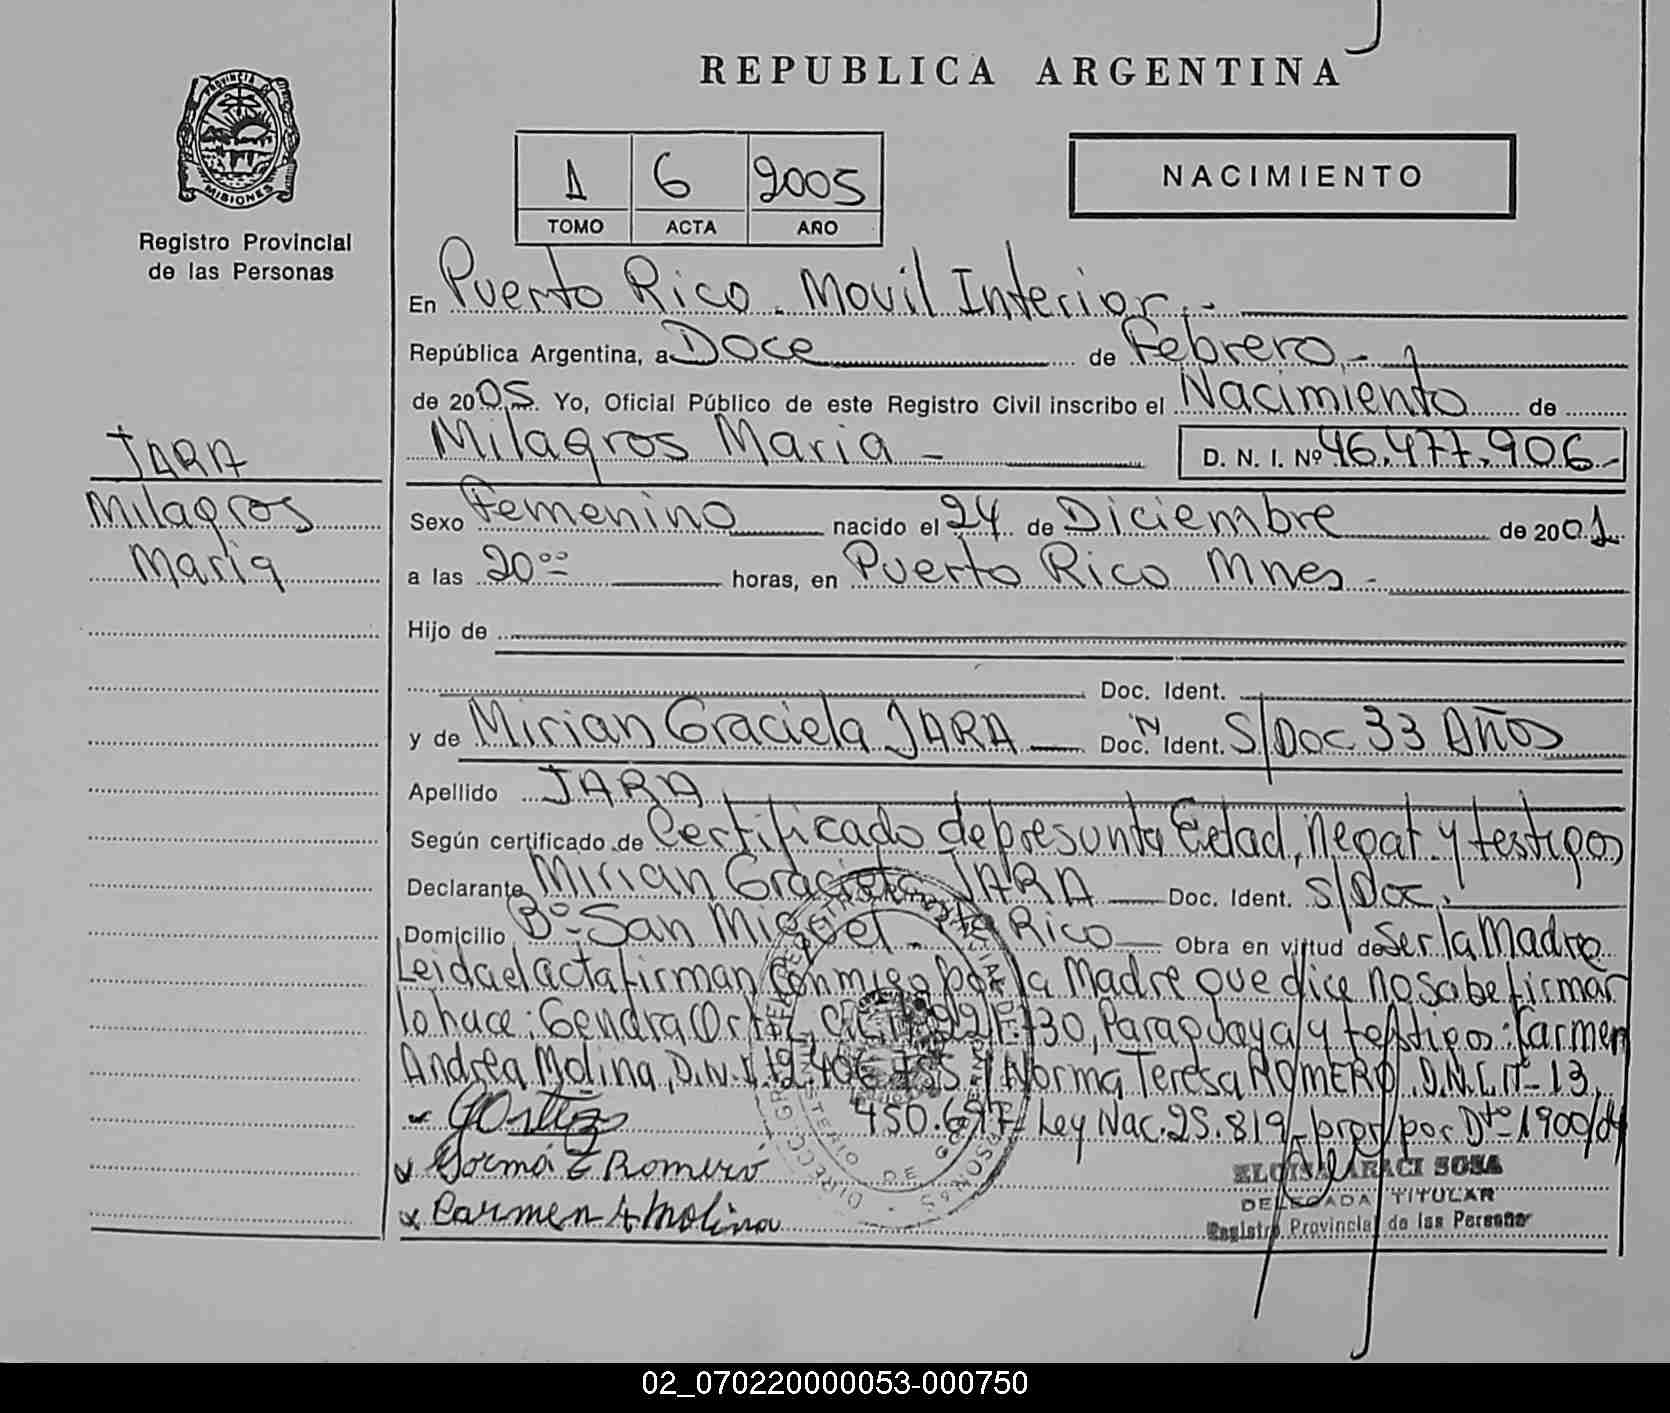 REPUBLICA ARGENTINA
PROVINCIA DE
MISIONES
Registro Provincial
de las Personas
1 6 2005
TOMO ACTA AÑO
NACIMIENTO
En Puerto Rico - Movil Interior.-
República Argentina, a Doce de Febrero.-
de 2005. Yo, Oficial Público de este Registro Civil inscribo el Nacimiento de
Milagros Maria - D. N. I. Nº 46.477.906.-
JARA
Milagros
Maria
Sexo Femenino nacido el 24 de Diciembre de 2001.
a las 20ºº horas, en Puerto Rico Mnes.-
Hijo de
Doc. Ident.
y de Mirian Graciela JARA Doc. Ident. S/Doc 33 Años
Apellido JARA
Según certificado de Certificado de presunta Edad, Negat. y testigos
Declarante Mirian Graciela JARA Doc. Ident. S/Doc.
Domicilio Bº San Miguel - Pto Rico Obra en virtud de Ser la Madre
Leida el acta firman conmigo por la Madre que dice no sabe firmar
lo hace: Gendra Ortiz, Paraguaya y testigos: Carmen
Andrea Molina, D.N.I. y Norma Teresa ROMERO, D.N.I. nº 13.
450.697 Ley Nac. 25.819- pror por Dto 1900/04
GOrtiz
Norma T Romero
Carmen A Molina
ELOISA ARACI SOSA
DELEGADA TITULAR
Registro Provincial de las Personas
02_070220000053-000750